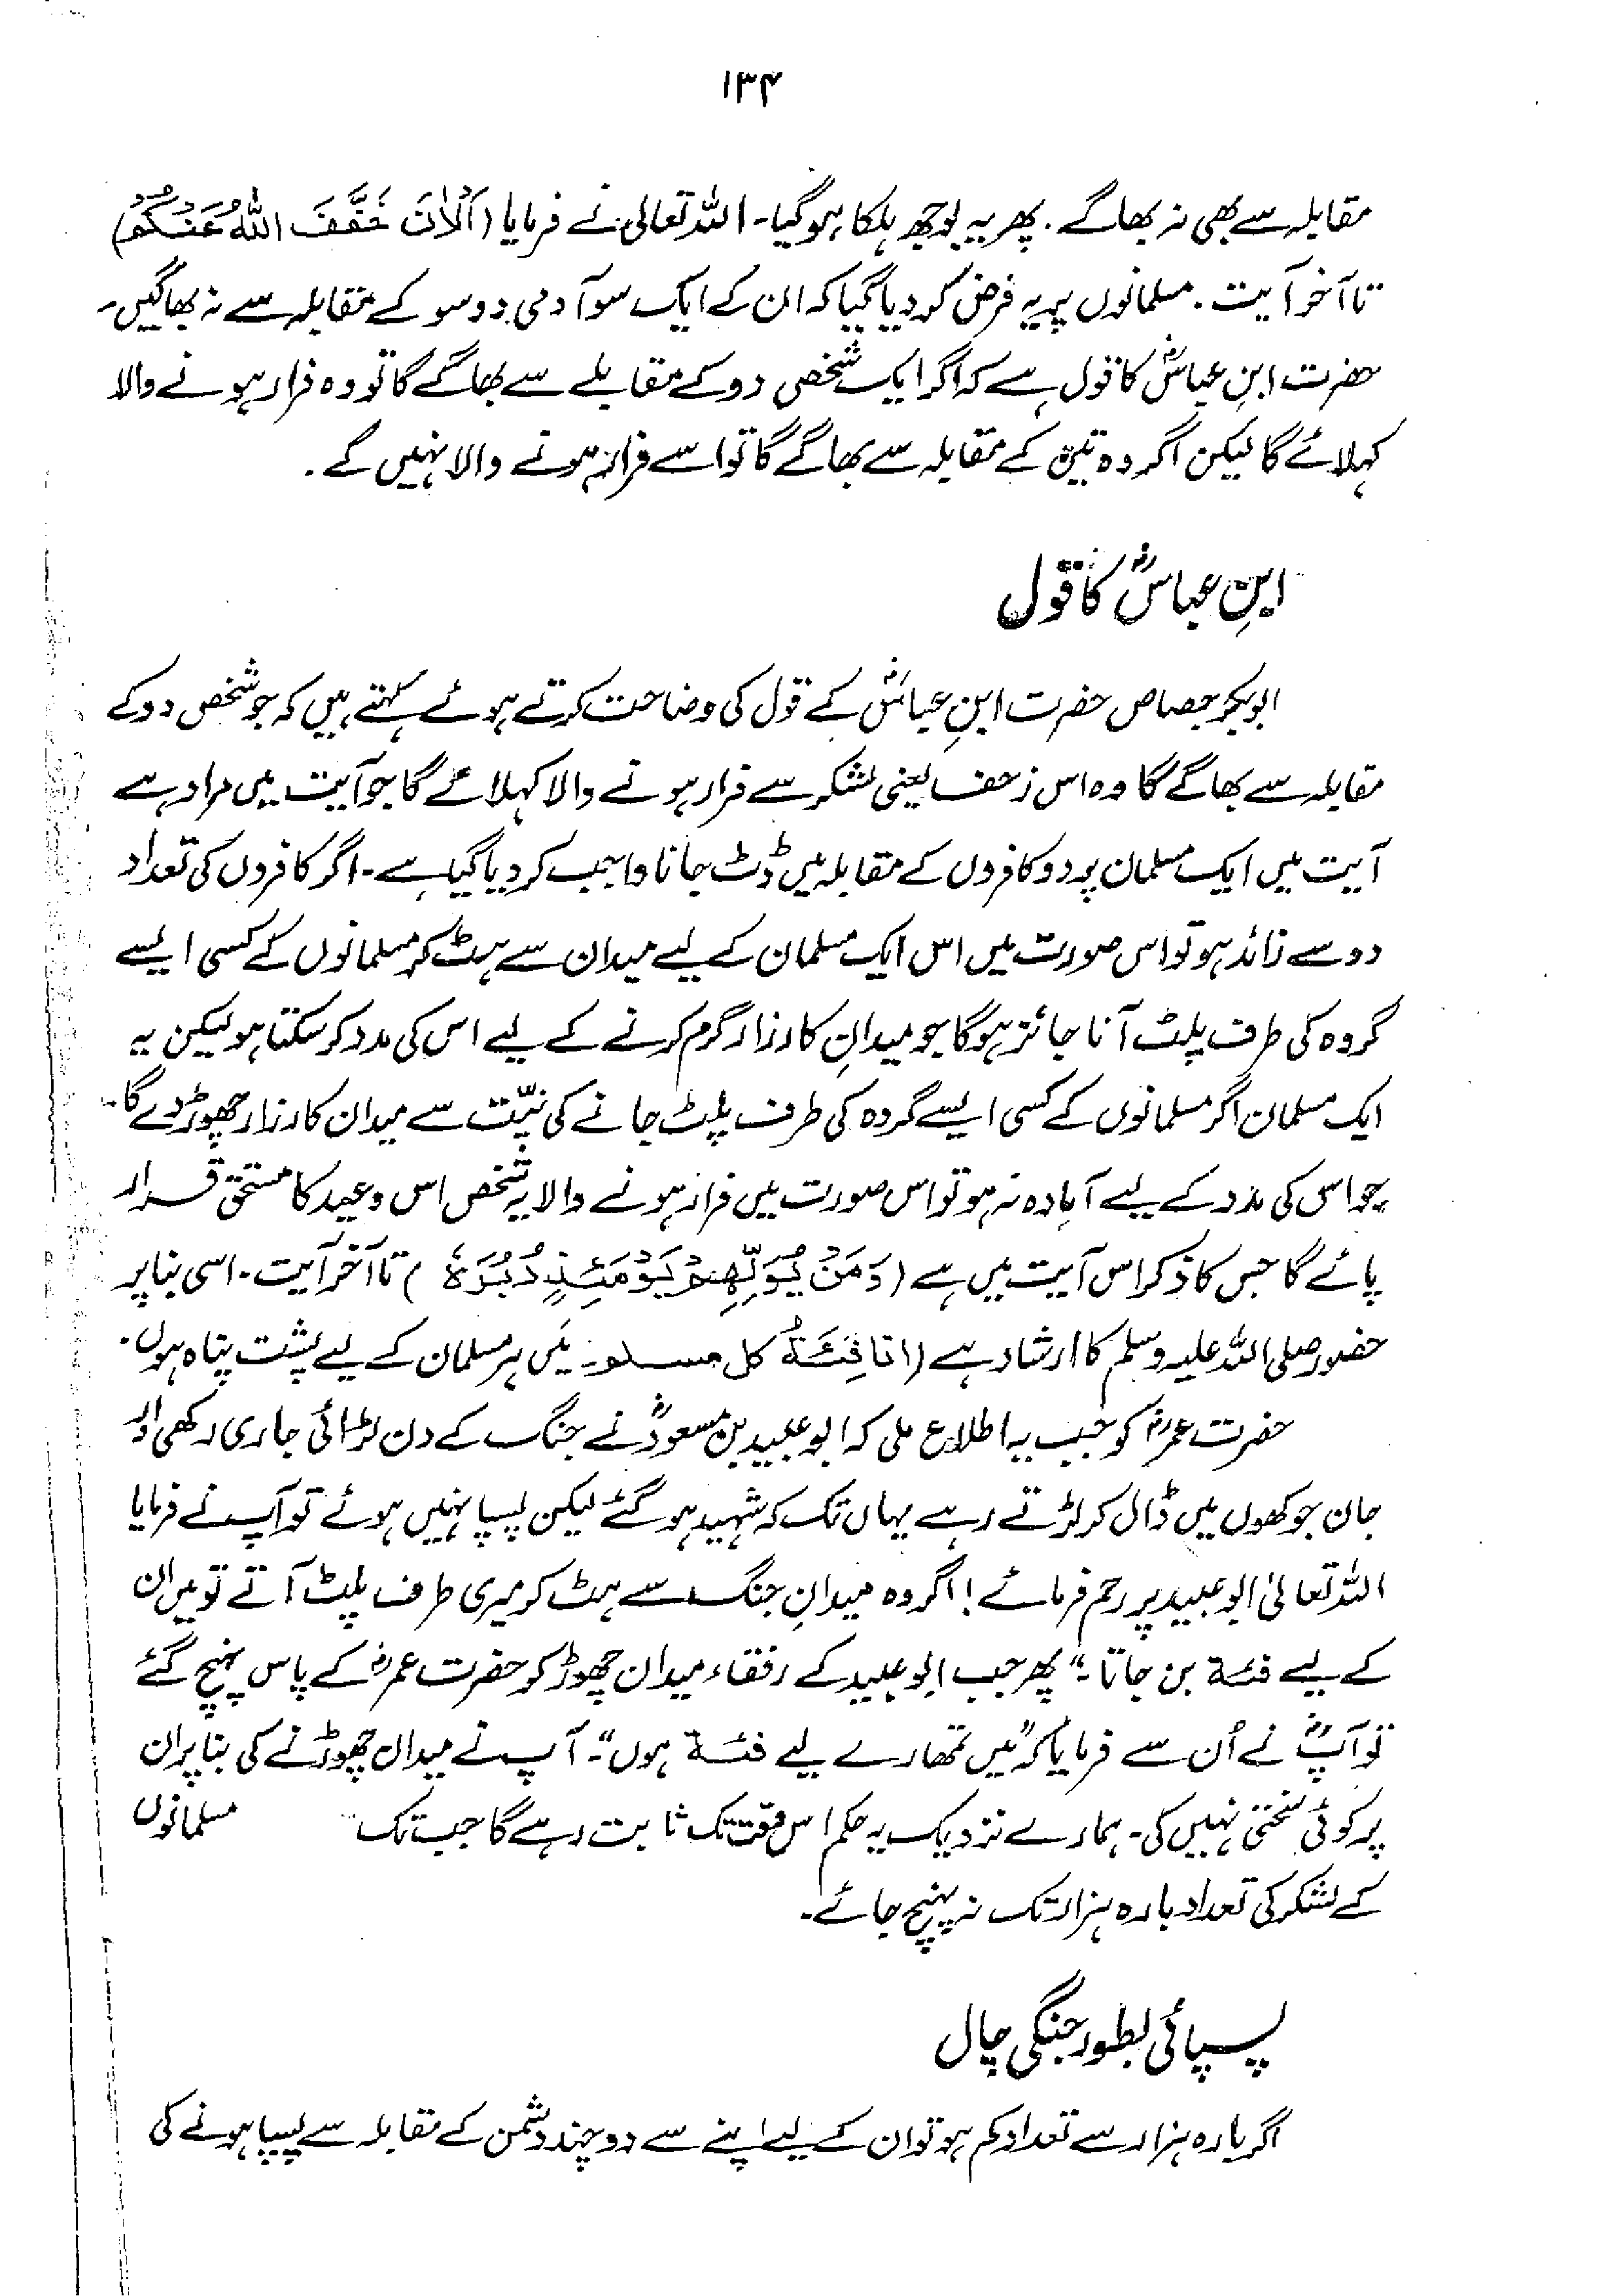 ۱۳۴
مقابلہ سے بھی نہ بھاگے۔ پھر یہ بوجھ ہلکا ہوگیا۔ اللہ تعالیٰ نے فرمایا (اَلْاٰنَ خَفَّفَ اللّٰهُ عَنْكُمْ)
تا آخر آیت۔ مسلمانوں پر یہ فرض کر دیا گیا کہ ان کے ایک سو آدمی دو سو کے مقابلہ سے نہ بھاگیں۔
حضرت ابنِ عباسؓ کا قول ہے کہ اگر ایک شخص دو کے مقابلے سے بھاگے گا تو وہ فرار ہونے والا
کہلائے گا لیکن اگر وہ تین کے مقابلہ سے بھاگے گا تو اسے فرار ہونے والا نہیں کہے۔
ابنِ عباسؓ کا قول
ابوبکر جصاص حضرت ابنِ عباسؓ کے قول کی وضاحت کرتے ہوئے کہتے ہیں کہ جو شخص دو کے
مقابلہ سے بھاگے گا وہ اس زحف یعنی لشکر سے فرار ہونے والا کہلائے گا جو آیت میں مراد ہے
آیت میں ایک مسلمان پر دو کافروں کے مقابلہ میں ڈٹ جانا واجب کر دیا گیا ہے۔ اگر کافروں کی تعداد
دو سے زائد ہو تو اس صورت میں اس ایک مسلمان کے لیے میدان سے ہٹ کر مسلمانوں کے کسی ایسے
گروہ کی طرف پلٹ آنا جائز ہوگا جو میدانِ کارزار گرم کرنے کے لیے اس کی مدد کر سکتا ہو لیکن یہ
ایک مسلمان اگر مسلمانوں کے کسی ایسے گروہ کی طرف پلٹ جانے کی نیّت سے میدان کارزار چھوڑ دے گا۔
جو اس کی مدد کے لیے آمادہ نہ ہو تو اس صورت میں فرار ہونے والا یہ شخص اس وعید کا مستحق قرار
پائے گا جس کا ذکر اس آیت میں ہے (وَمَنْ يُّوَلِّهِمْ يَوْمَئِذٍ دُبُرَهٗ) تا آخر آیت۔ اسی بنا پر
حضور صلی اللہ علیہ وسلم کا ارشاد ہے (انا فِئَةُ كل مسلم۔ میں ہر مسلمان کے لیے پشت پناہ ہوں۔
حضرت عمرؓ کو جب یہ اطلاع ملی کہ ابوعبید بن مسعودؓ نے جنگ کے دن لڑائی جاری رکھی اور
جان جوکھوں میں ڈال کر لڑتے رہے یہاں تک کہ شہید ہو گئے لیکن پسپا نہیں ہوئے تو آپ نے فرمایا
اللہ تعالیٰ ابوعبید پر رحم فرمائے! اگر وہ میدانِ جنگ سے ہٹ کر میری طرف پلٹ آتے تو میں ان
کے لیے فئۃ بن جاتا۔“ پھر جب ابوعبید کے رفقاء میدان چھوڑ کر حضرت عمرؓ کے پاس پہنچ گئے
تو آپؓ نے اُن سے فرمایا کہ ”میں تمھارے لیے فئۃ ہوں“۔ آپ نے میدان چھوڑنے کی بنا پر ان
پر کوئی سختی نہیں کی۔ ہمارے نزدیک یہ حکم اس وقت تک ثابت رہے گا جب تک مسلمانوں
کے لشکر کی تعداد بارہ ہزار تک نہ پہنچ جائے۔
پسپائی بطور جنگی چال
اگر بارہ ہزار سے تعداد کم ہو تو ان کے لیے اپنے سے دو چند دشمن کے مقابلہ سے پسپا ہونے کی